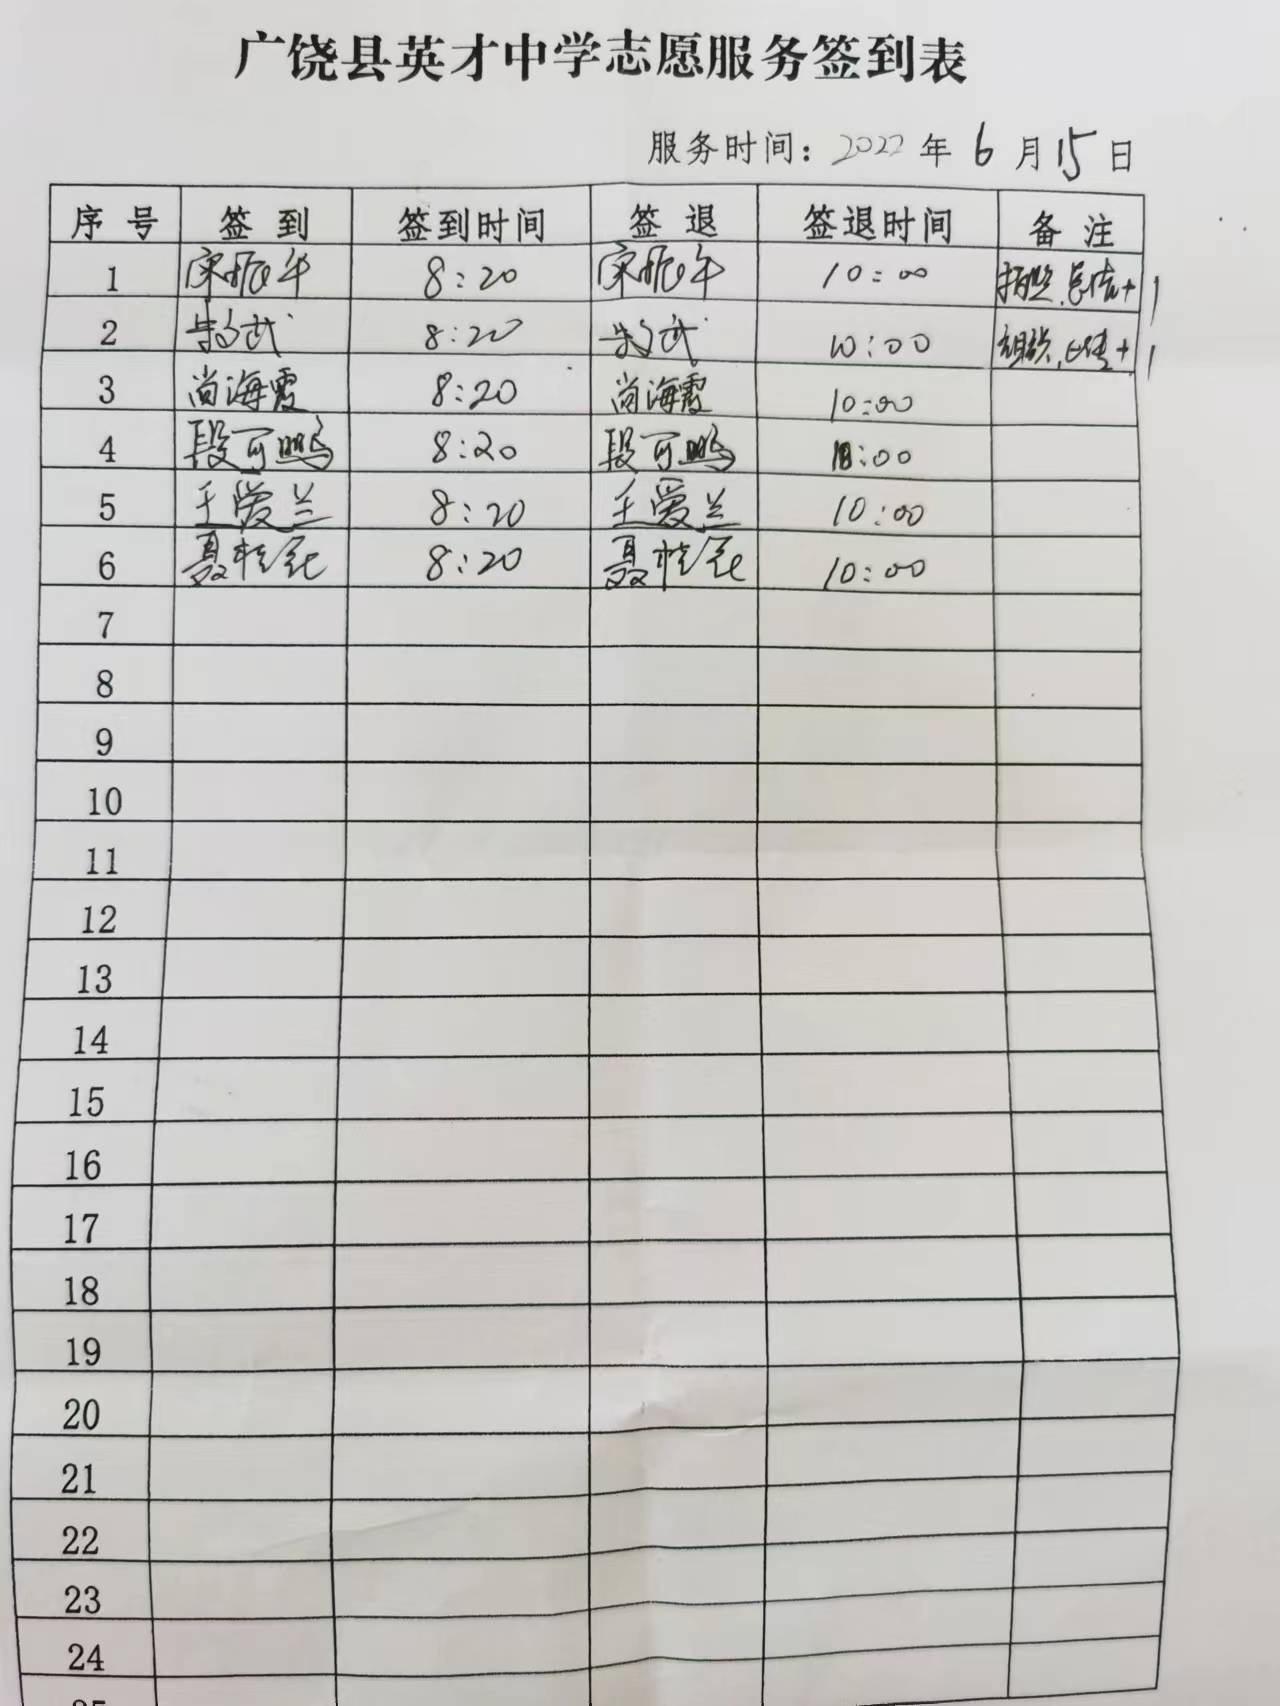 广饶县英才中学志愿服务签到表
服务时间：2022年6月15日
序号 签到 签到时间 签退 签退时间 备注
1 宋振华 8:20 宋振华 10:00 拍照、总结+1
2 8:20 10:00 组织、+1
3 尚海霞 8:20 尚海霞 10:00
4 段可鹏 8:20 段可鹏 10:00
5 王爱兰 8:20 王爱兰 10:00
6 聂桂花 8:20 聂桂花 10:00
7
8
9
10
11
12
13
14
15
16
17
18
19
20
21
22
23
24
25